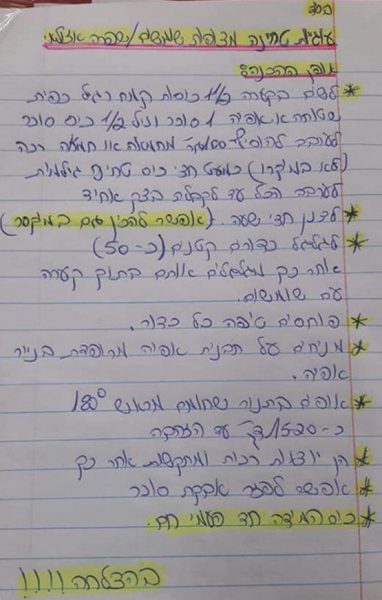 בס"ד
עוגיות טחינה מצופות שומשום/שפרה אזולאי
אופן ההכנה:
* לשים בקערה 2½ כוסות קמח רגיל כפית
שטוחה א.אפיה 1 סוכר וניל ½ כוס סוכר
לערבב להוסיף חמאה רכה
(לא במיקרו) כמעט חצי כוס טחינה גולמית
לערבב הכל עד לקבלת בצק אחיד
* לצנן חצי שעה. (אפשר להכין גם במיקסר)
* לגלגל כדורים קטנים (כ-50)
אחר כך מגלגלים אותם בתוך קערה
עם שומשום.
* פוחסים טיפה כל כדור.
* מניחים על תבנית אפיה מרופדת בנייר
אפיה.
* אופים בתנור שחומם מראש 180°
כ-15-20 דק' עד הזהבה
* הן יוצאות רכות ומתקשות אחר כך
* אפשר לפזר אבקת סוכר
* כוס המידה חד פעמי חם.
בהצלחה!!!!